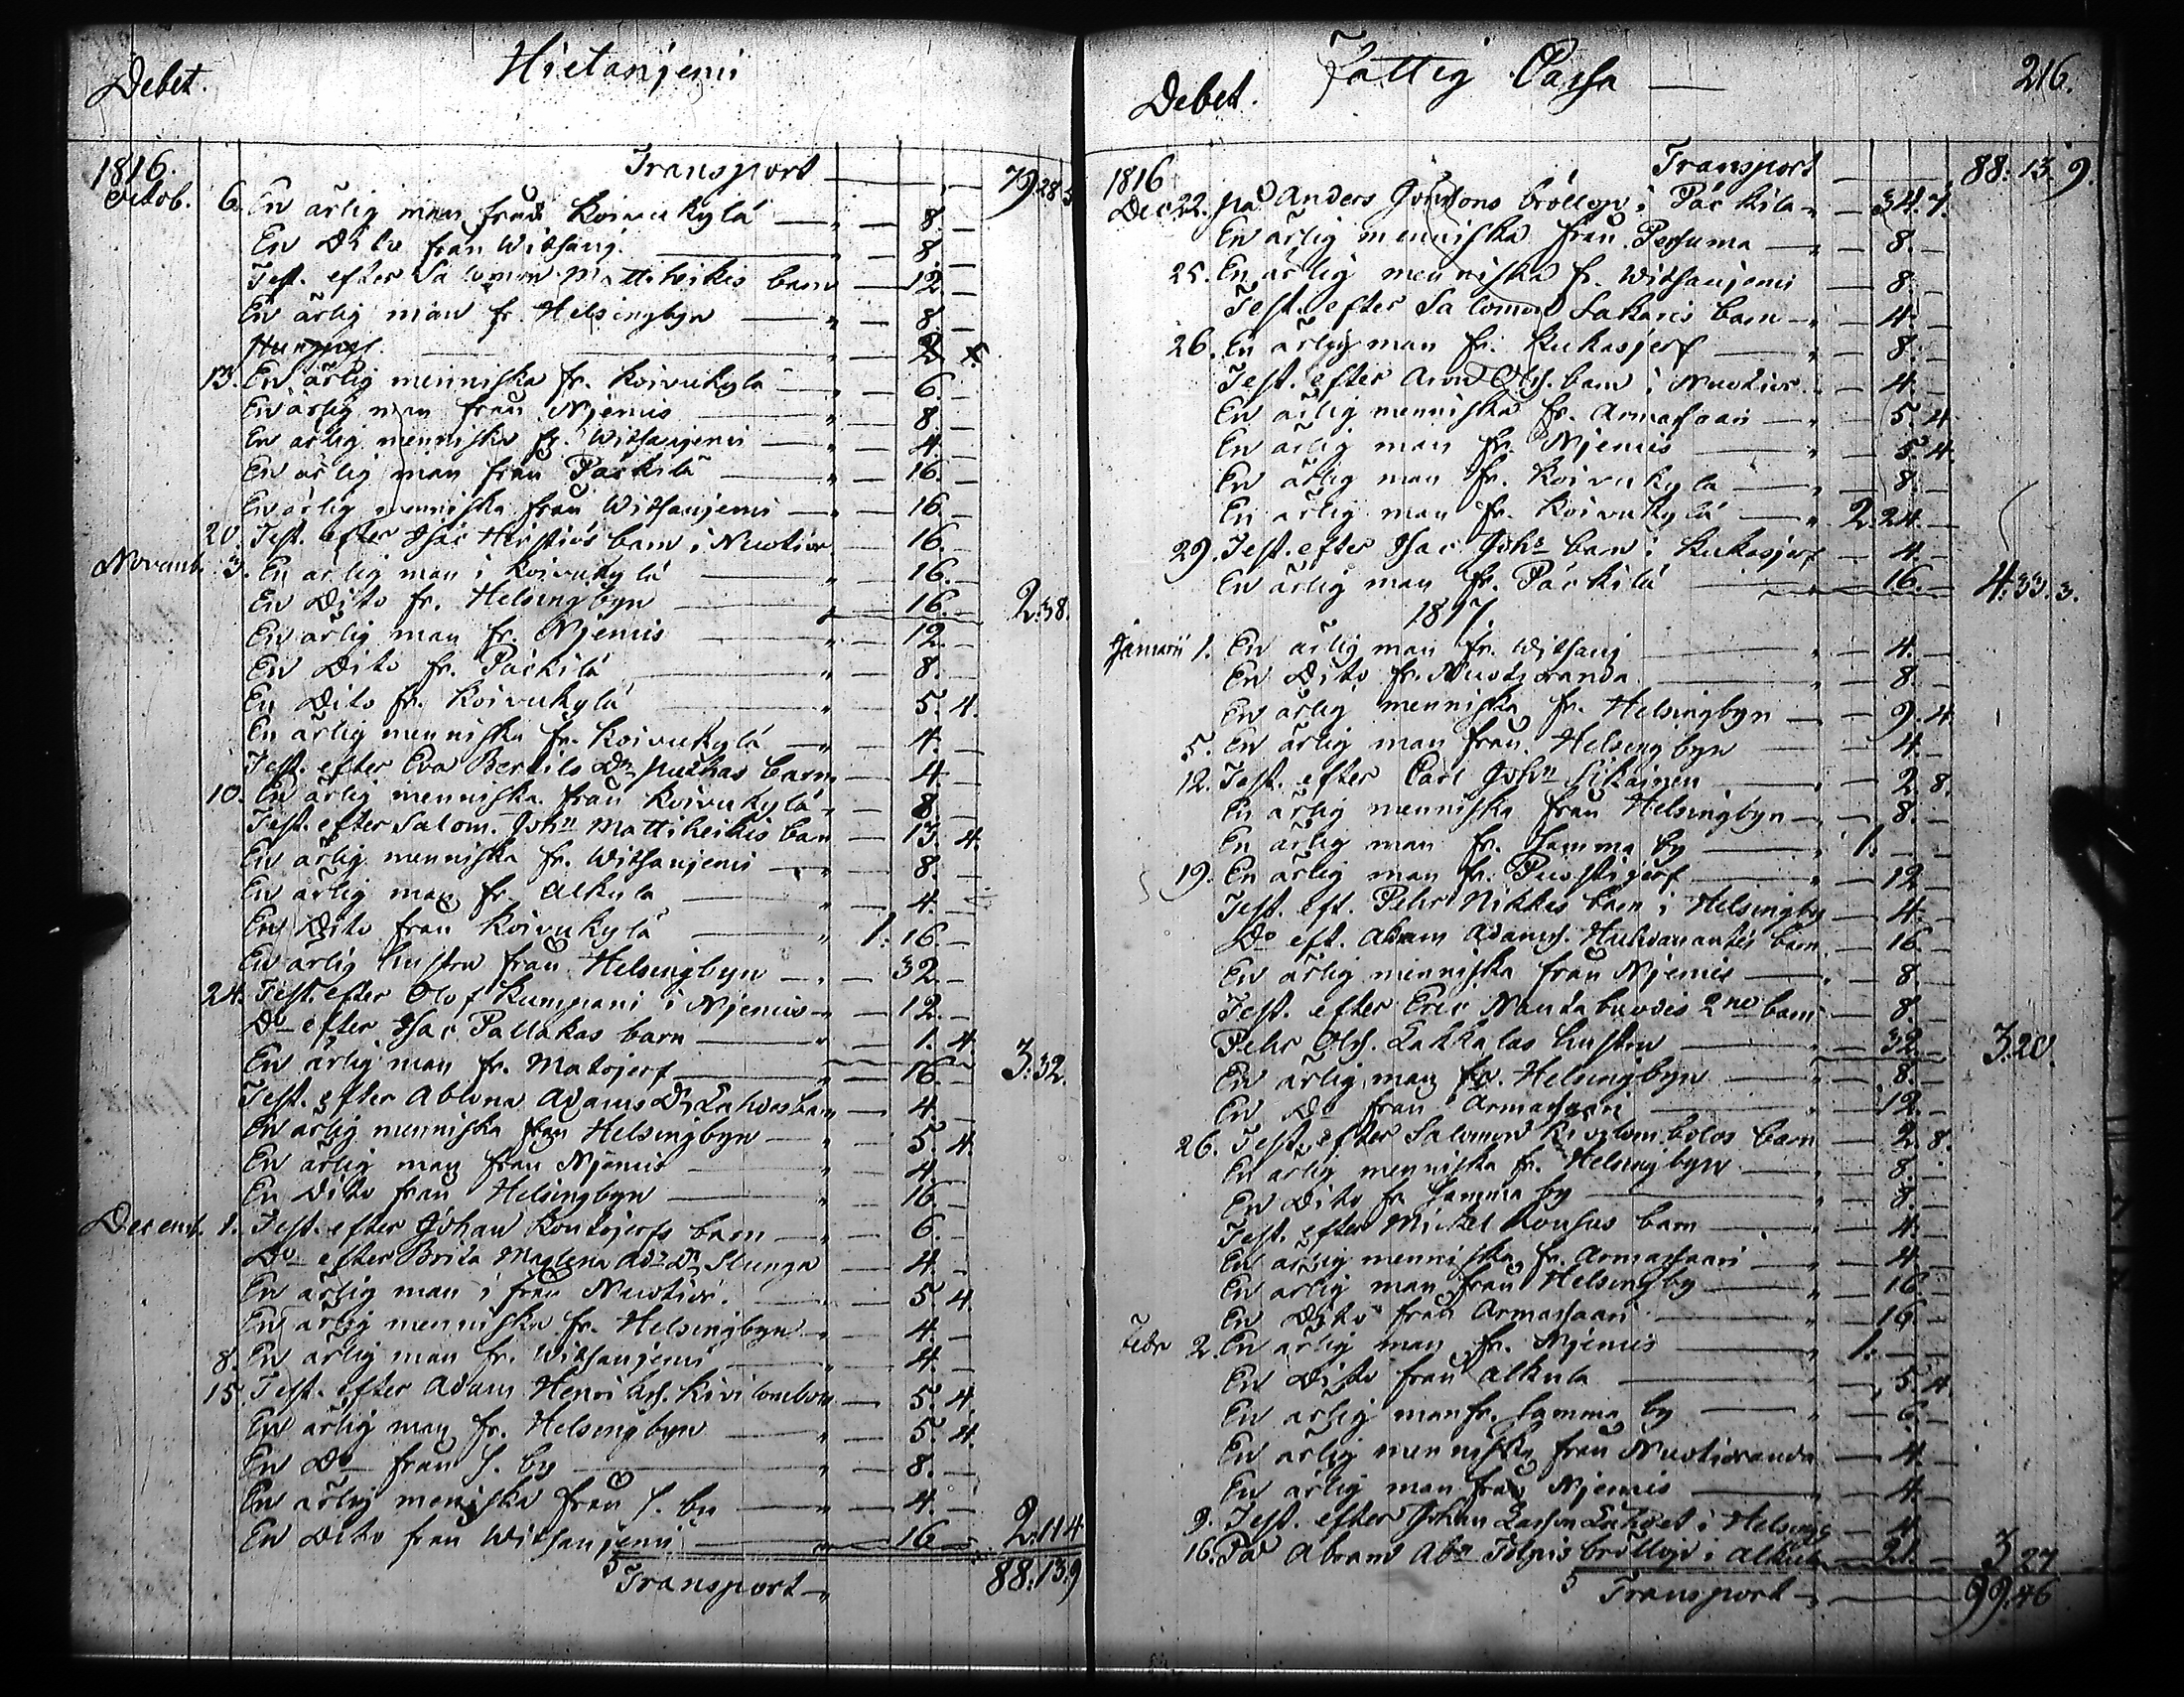 Debet. Hietanjemi
1816. Transport 79.28.5
Octob. 6. En ärlig man från Koivukylä 8.
En Dito från Witsanj. 8.
Test. efter Salomon Mattiheikis barn 12.
En ärlig man fr. Helsingbyn 8.
2
13. En ärlig menniska fr. Koivukylä 6.
En ärlig man från Njemis 8.
En ärlig menniska fr. Witsanjemi 4.
En ärlig man från Päckilä 16.
En ärlig menniska från Witsanjemi 16.
20. Test. efter Isac barn i Nuotior. 16.
Novemb. 3. En ärlig man i Koivukylä 16.
En Dito fr. Helsingbyn 16. 2.38.
En ärlig man fr. Njemis 12.
En Dito fr. Päckilä 8.
En Dito fr. Koivukylä 5.4.
En ärlig menniska fr. Koivukylä 4.
Test. efter Eva Bertils Dr barn 4.
10. En ärlig menniska från Koivukylä 8.
Test. efter Salom. John Mattiheikis barn 13.4.
En ärlig menniska fr. Witsanjemi 8.
En ärlig man fr. Alkula 4.
En Dito från Koivukylä 1.16.
En ärlig hustru från Helsingbyn 32.
24. Test. efter Olof Kumpani i Njemis 12.
Do efter Isac Pallakas barn 1.4.
En ärlig man fr. Matojerf 16. 3:32.
Test. efter Adams Dr Lahdes barn 4.
En ärlig menniska från Helsingbyn 5.4.
En ärlig man från Njemis 4.
En Dito från Helsingbyn 16.
Decemb. 1. Test. efter Johan Kontojerfs barn 6.
Do efter Brita Maglena Ads Dr Stunga 4.
En ärlig man i från Nuotior. 5.4.
En ärlig menniska fr. Helsingbyn 4.
8. En ärlig man fr. Witsanjemi 4.
15. Test. efter Adam Henrikss. Kivilombolo 5.4.
En ärlig man fr. Helsingbyn 5.4.
En Do från S. by 8.
En ärlig meniska från S. by 4.
En Dito från Witsanjemi 16. 2.11.4
Transport 88.13.9
Debet. Fattig Cassa 216.
1816 Transport 88.13.9.
Dec. 22. på Anders bröllop i Päckilä 34.7.
En ärlig menniska från Persuma 8.
25. En ärlig menniska fr. Witsanjemi 8.
Test. efter Salomon Sakaris barn 4.
26. En ärlig man fr. Kukasjerf 8.
Test. efter Aron Ols. barn i Nuotior. 4.
En ärlig menniska fr. Armassaari 5.4
En ärlig man fr. Njemis 5.4.
En ärlig man fr. Koivukylä 8.
En ärlig man fr. Koivukylä 2.24.
29. Test. efter Isac Johs barn i Kukasjerf 4.
En ärlig man fr. Päckilä 16. 4.33.3.
1817.
Januarii 1. En ärlig man fr. Witsanj 4.
En Dito fr. Nuotioranda 8.
En ärlig menniska fr. Helsingbyn 9.4
5. En ärlig man från Helsingbyn 4.
12. Test. efter Carl Johs 2.8.
En ärlig menniska från Helsingbyn 8.
En ärlig man fr. Samma by 1.
19. En ärlig man fr. Puostijerf 12
Test. eft. Pehr Nikkes barn i Helsingby 4.
Do eft. Adam Adamss. barn 16
En ärlig menniska från Njemis 8.
Test. efter Eric 2ne barn 8.
Pehr Ols. Lakkalas hustru 32. 3.20.
En ärlig man fr. Helsingbyn 8.
En Do från Armassaari 12.
26. Test. efter Salomon Kivilombolos barn 2.8.
En ärlig menniska fr. Helsingbyn 8.
En Dito fr. Samma by 8.
Test. efter Mickel barn 4.
En ärlig menniska fr. Armassaari 4.
En ärlig man från Helsingby 16
En Dito från Armassaari 16.
Febr 2. En ärlig man fr. Njemis 1.
En Dito från Alkula 5.4.
En ärlig man fr. samma by 6.
En ärlig menniska från Nuotioranda 4.
En ärlig man från Njemis 4.
9. Test. efter Johan Larsson i Helsingb 4
16. På Abrams bröllop i Alkula 21. 3.27
Transport 99.46